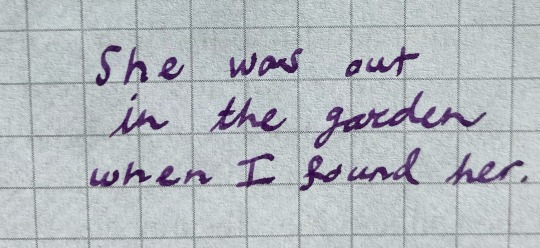 She was out
in the garden
when I found her.